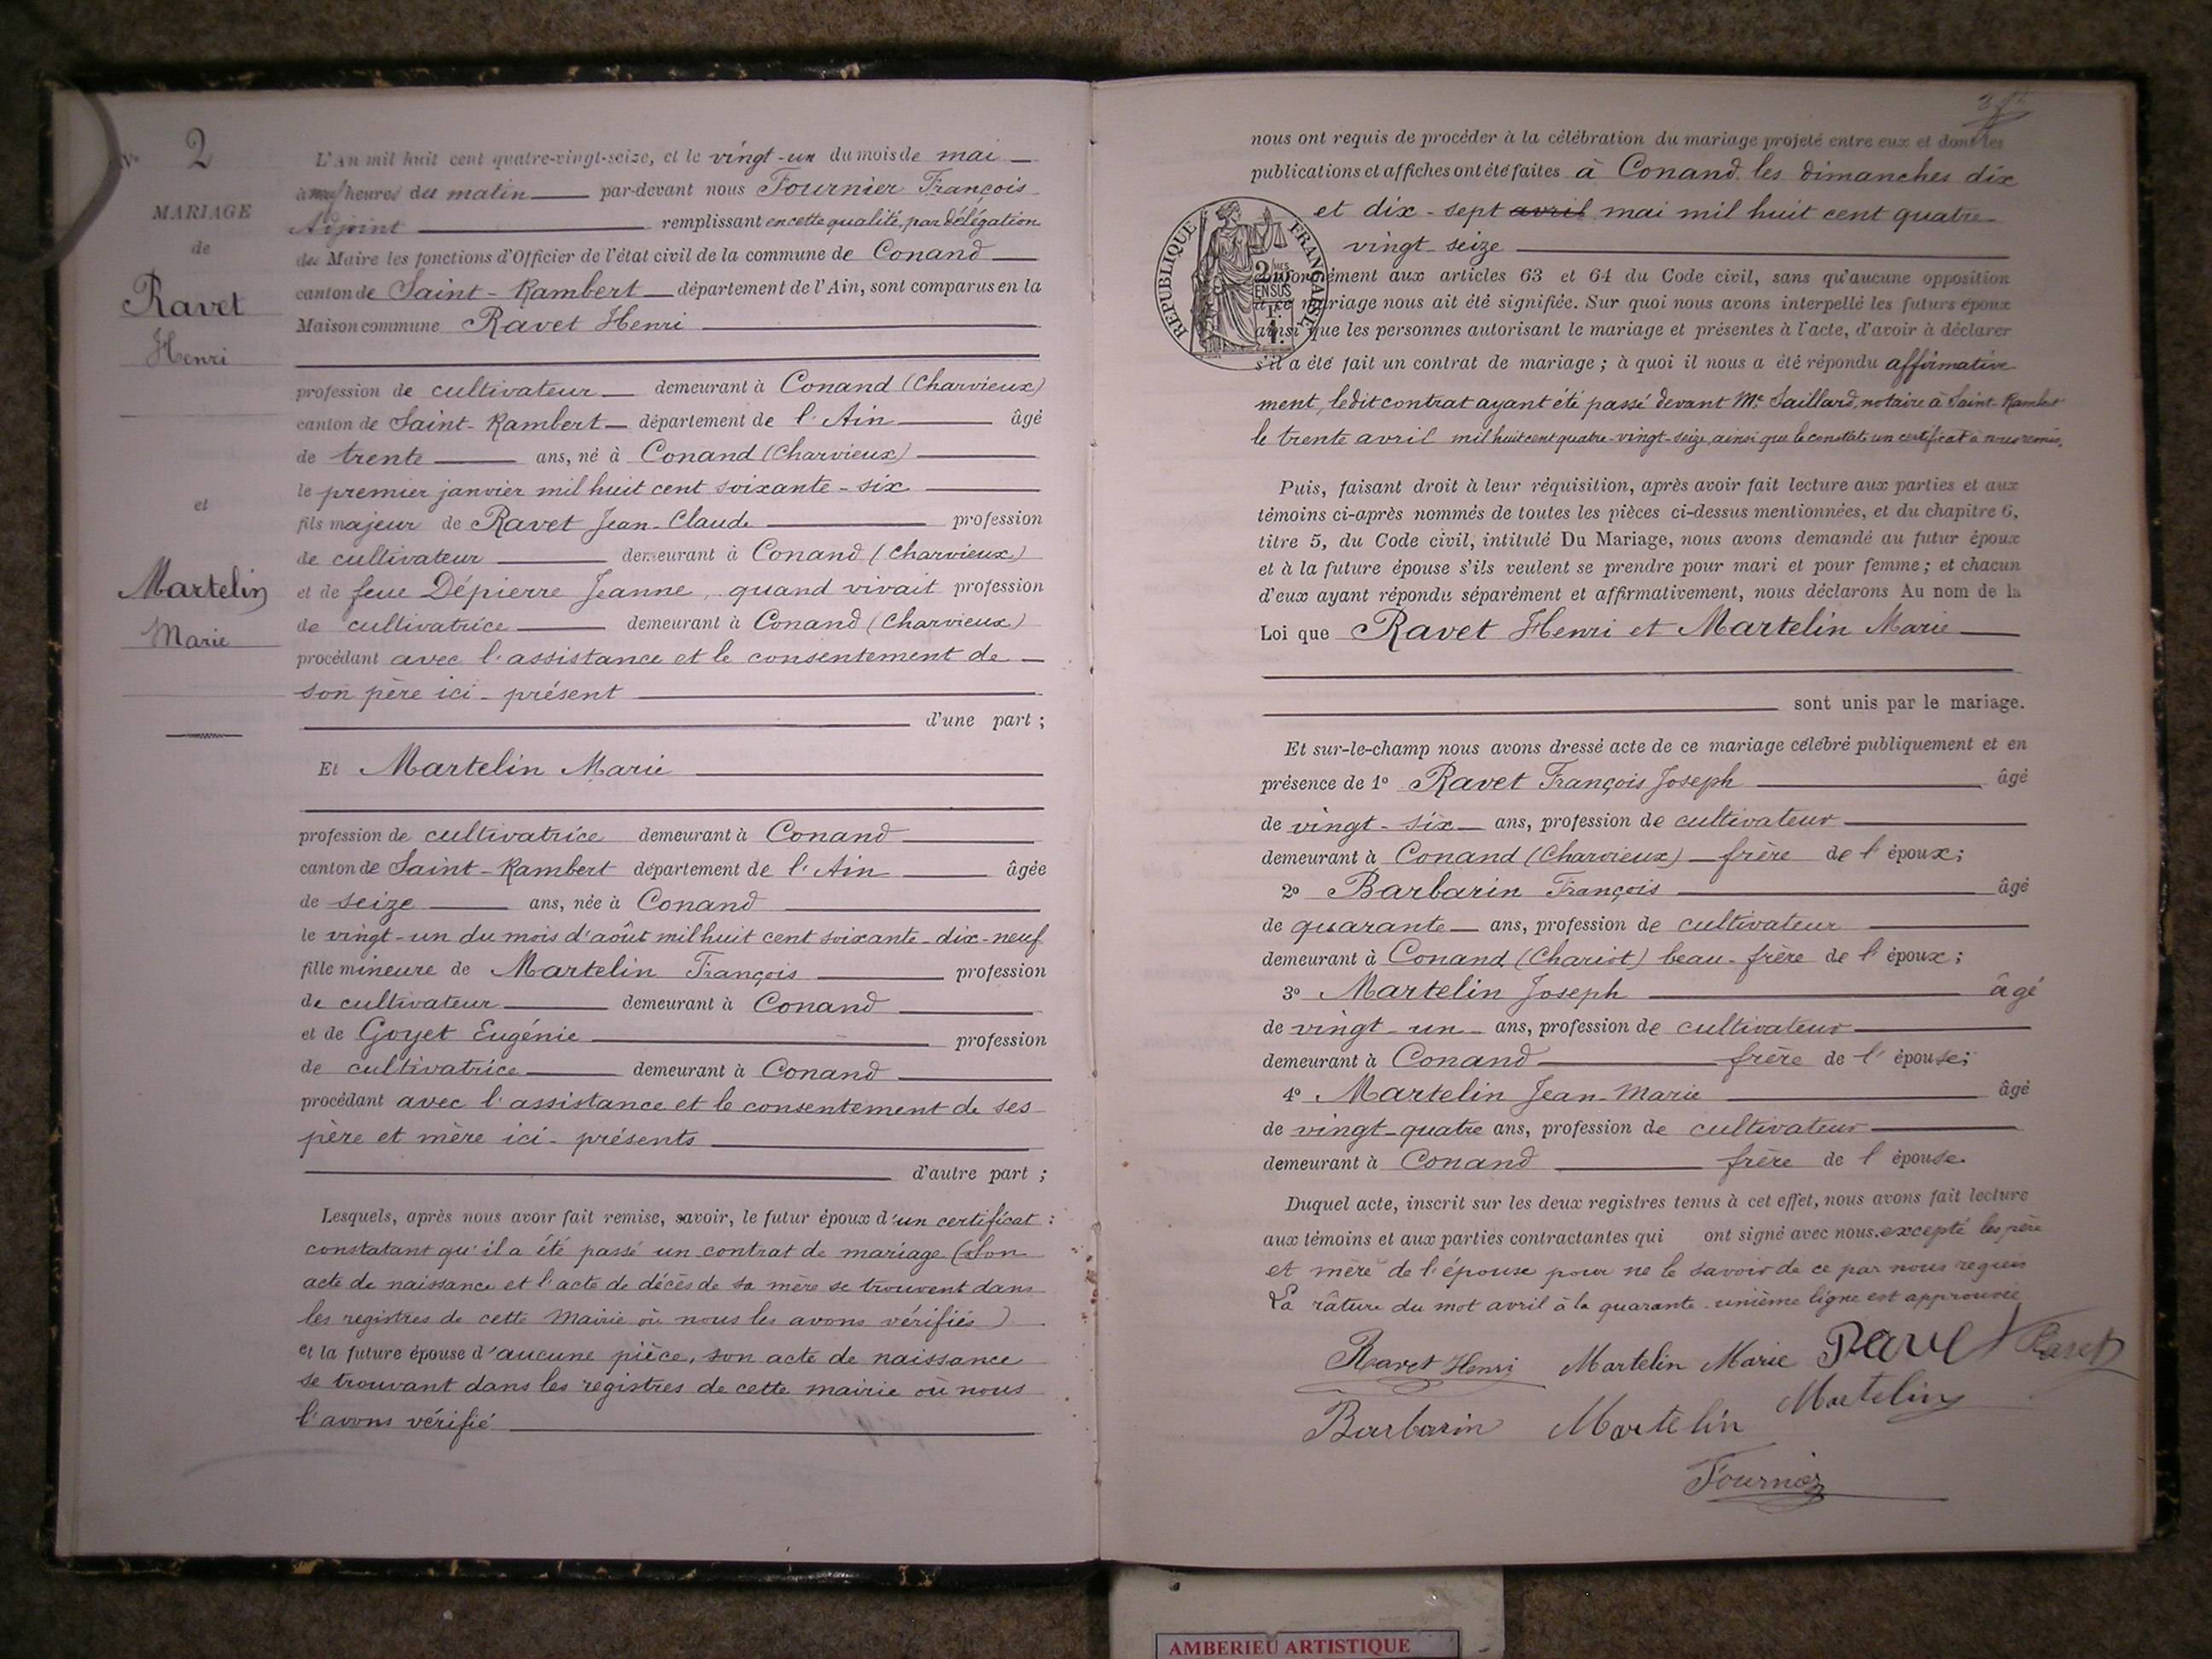 N° 2
MARIAGE
de
Ravet
Henri
et
Martelin
Marie
L'An mil huit cent quatre-vingt-seize, et le vingt-un du mois de mai
à neuf heures du matin par-devant nous Fournier François
Adjoint remplissant en cette qualité, par délégation
du Maire les fonctions d'Officier de l'état civil de la commune de Conand
canton de Saint-Rambert département de l'Ain, sont comparus en la
Maison commune Ravet Henri
profession de cultivateur demeurant à Conand (Charvieux)
canton de Saint-Rambert département de l'Ain âgé
de trente ans, né à Conand (Charvieux)
le premier janvier mil huit cent soixante-six
fils majeur de Ravet Jean-Claude profession
de cultivateur demeurant à Conand (Charvieux)
et de feue Dépierre Jeanne, quand vivait profession
de cultivatrice demeurant à Conand (Charvieux)
procédant avec l'assistance et le consentement de
son père ici-présent
d'une part ;
Et Martelin Marie
profession de cultivatrice demeurant à Conand
canton de Saint-Rambert département de l'Ain âgée
de seize ans, née à Conand
le vingt-un du mois d'août mil huit cent soixante-dix-neuf
fille mineure de Martelin François profession
de cultivateur demeurant à Conand
et de Goyet Eugénie profession
de cultivatrice demeurant à Conand
procédant avec l'assistance et le consentement de ses
père et mère ici-présents
d'autre part ;
Lesquels, après nous avoir fait remise, savoir, le futur époux d'un certificat :
constatant qu'il a été passé un contrat de mariage (Son
acte de naissance et l'acte de décès de sa mère se trouvent dans
les registres de cette Mairie où nous les avons vérifiés)
et la future épouse d'aucune pièce, son acte de naissance
se trouvant dans les registres de cette mairie où nous
l'avons vérifié
nous ont requis de procéder à la célébration du mariage projeté entre eux et dont les
publications et affiches ont été faites à Conand les dimanches dix
et dix-sept avril mai mil huit cent quatre-
vingt-seize
RÉPUBLIQUE FRANÇAISE
2 MES
EN SUS
Conformément aux articles 63 et 64 du Code civil, sans qu'aucune opposition
à ce mariage nous ait été signifiée. Sur quoi nous avons interpellé les futurs époux
ainsi que les personnes autorisant le mariage et présentes à l'acte, d'avoir à déclarer
s'il a été fait un contrat de mariage ; à quoi il nous a été répondu affirmative
ment, le dit contrat ayant été passé devant Me Saillard, notaire à Saint-Rambert
le trente avril mil huit cent quatre-vingt-seize, ainsi que le constate un certificat à nous remis.
Puis, faisant droit à leur réquisition, après avoir fait lecture aux parties et aux
témoins ci-après nommés de toutes les pièces ci-dessus mentionnées, et du chapitre 6,
titre 5, du Code civil, intitulé Du Mariage, nous avons demandé au futur époux
et à la future épouse s'ils veulent se prendre pour mari et pour femme ; et chacun
d'eux ayant répondu séparément et affirmativement, nous déclarons Au nom de la
Loi que Ravet Henri et Martelin Marie
sont unis par le mariage.
Et sur-le-champ nous avons dressé acte de ce mariage célébré publiquement et en
présence de 1° Ravet François Joseph âgé
de vingt-six ans, profession de cultivateur
demeurant à Conand (Charvieux) frère de l'époux ;
2° Barbarin François âgé
de quarante ans, profession de cultivateur
demeurant à Conand (Chariot) beau-frère de l'époux ;
3° Martelin Joseph âgé
de vingt-un ans, profession de cultivateur
demeurant à Conand frère de l'épouse ;
4° Martelin Jean-Marie âgé
de vingt-quatre ans, profession de cultivateur
demeurant à Conand frère de l'épouse
Duquel acte, inscrit sur les deux registres tenus à cet effet, nous avons fait lecture
aux témoins et aux parties contractantes qui ont signé avec nous. excepté les père
et mère de l'épouse pour ne le savoir de ce par nous requis
La rature du mot avril à la quarante-unième ligne est approuvée
Ravet Henri Martelin Marie Ravet Ravet
Barbarin Martelin Martelin
Fournier
AMBERIEU ARTISTIQUE